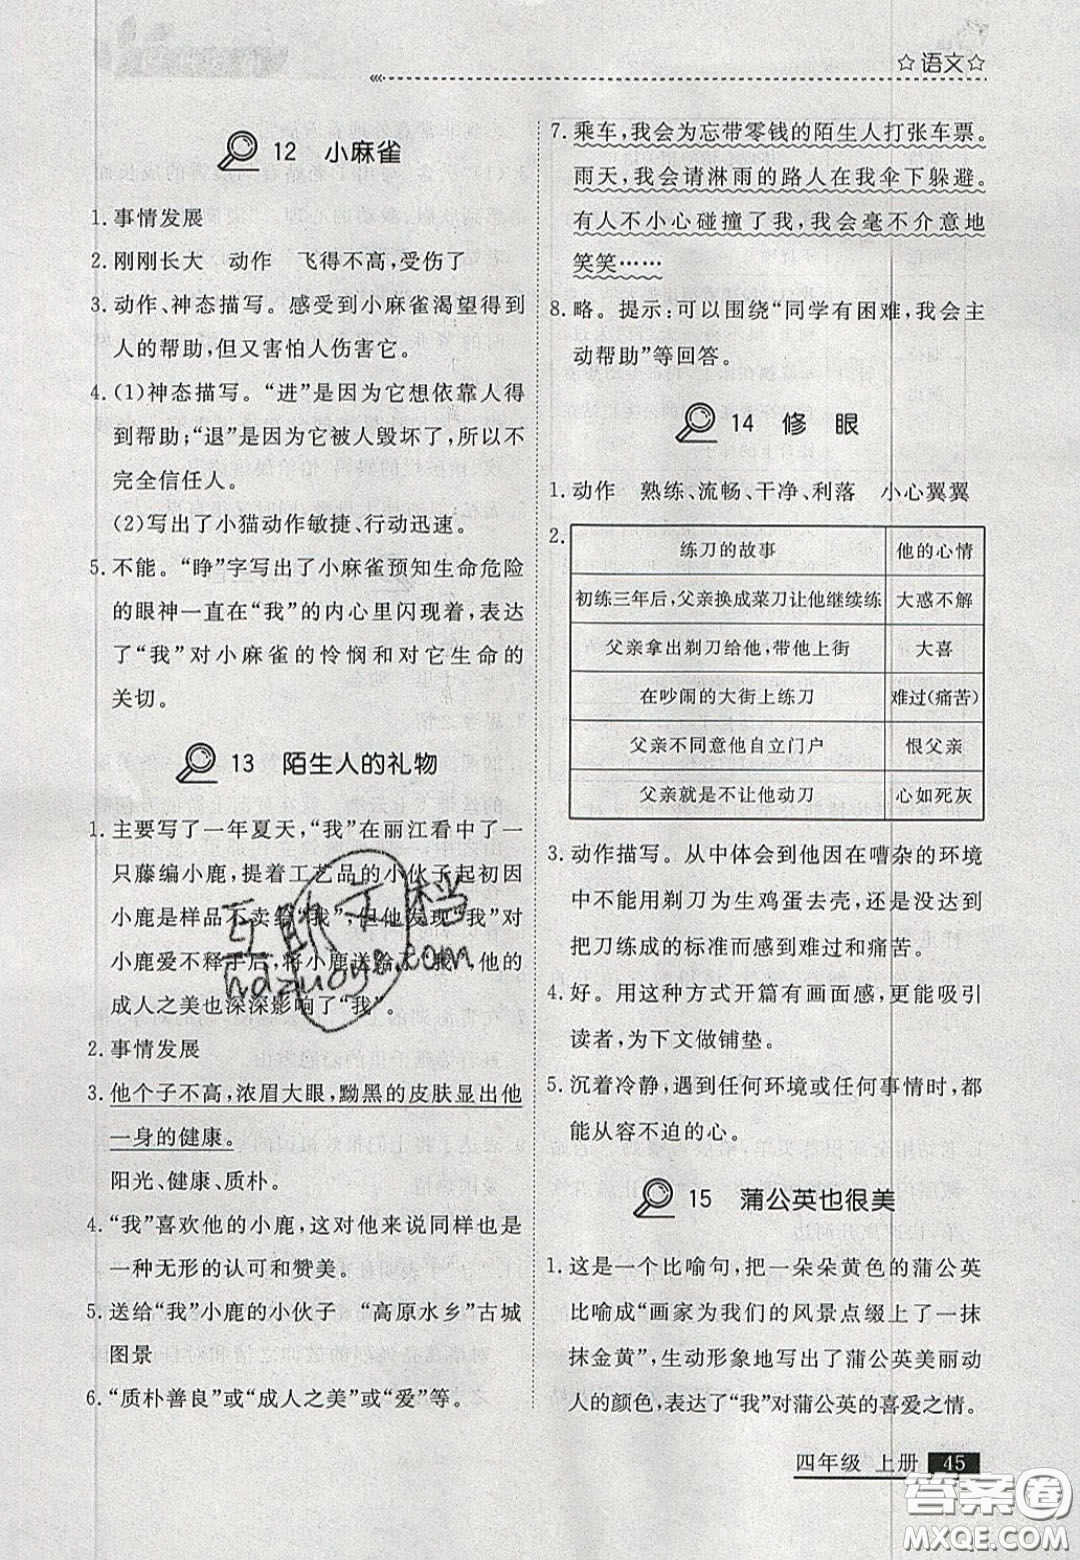 ☆语文☆
12 小麻雀
1. 事情发展
2. 刚刚长大 动作 飞得不高,受伤了
3. 动作、神态描写。感受到小麻雀渴望得到
人的帮助,但又害怕人伤害它。
4. (1)神态描写。“进”是因为它想依靠人得
到帮助;“退”是因为它被人毁坏了,所以不
完全信任人。
(2)写出了小猫动作敏捷、行动迅速。
5. 不能。“睁”字写出了小麻雀预知生命危险
的眼神一直在“我”的内心里闪现着,表达
了“我”对小麻雀的怜悯和对它生命的
关切。
13 陌生人的礼物
1. 主要写了一年夏天,“我”在丽江看中了一
只藤编小鹿,提着工艺品的小伙子起初因
小鹿是样品不卖给“我”,但他发现“我”对
小鹿爱不释手后,将小鹿送给了“我”,他的
成人之美也深深影响了“我”。
2. 事情发展
3. 他个子不高,浓眉大眼,黝黑的皮肤显出他
一身的健康。
阳光、健康、质朴。
4. “我”喜欢他的小鹿,这对他来说同样也是
一种无形的认可和赞美。
5. 送给“我”小鹿的小伙子 “高原水乡”古城
图景
6. “质朴善良”或“成人之美”或“爱”等。
7. 乘车,我会为忘带零钱的陌生人打张车票。
雨天,我会请淋雨的路人在我伞下躲避。
有人不小心碰撞了我,我会毫不介意地
笑笑……
8. 略。提示:可以围绕“同学有困难,我会主
动帮助”等回答。
14 修 眼
1. 动作 熟练、流畅、干净、利落 小心翼翼
2.
练刀的故事 他的心情
初练三年后,父亲换成菜刀让他继续练 大惑不解
父亲拿出剃刀给他,带他上街 大喜
在吵闹的大街上练刀 难过(痛苦)
父亲不同意他自立门户 恨父亲
父亲就是不让他动刀 心如死灰
3. 动作描写。从中体会到他因在嘈杂的环境
中不能用剃刀为生鸡蛋去壳,还是没达到
把刀练成的标准而感到难过和痛苦。
4. 好。用这种方式开篇有画面感,更能吸引
读者,为下文做铺垫。
5. 沉着冷静,遇到任何环境或任何事情时,都
能从容不迫的心。
15 蒲公英也很美
1. 这是一个比喻句,把一朵朵黄色的蒲公英
比喻成“画家为我们的风景点缀上了一抹
抹金黄”,生动形象地写出了蒲公英美丽动
人的颜色,表达了“我”对蒲公英的喜爱之情。
四年级 上册 45
互助文档
hdzuoye.com
答案圈
MXQE.COM